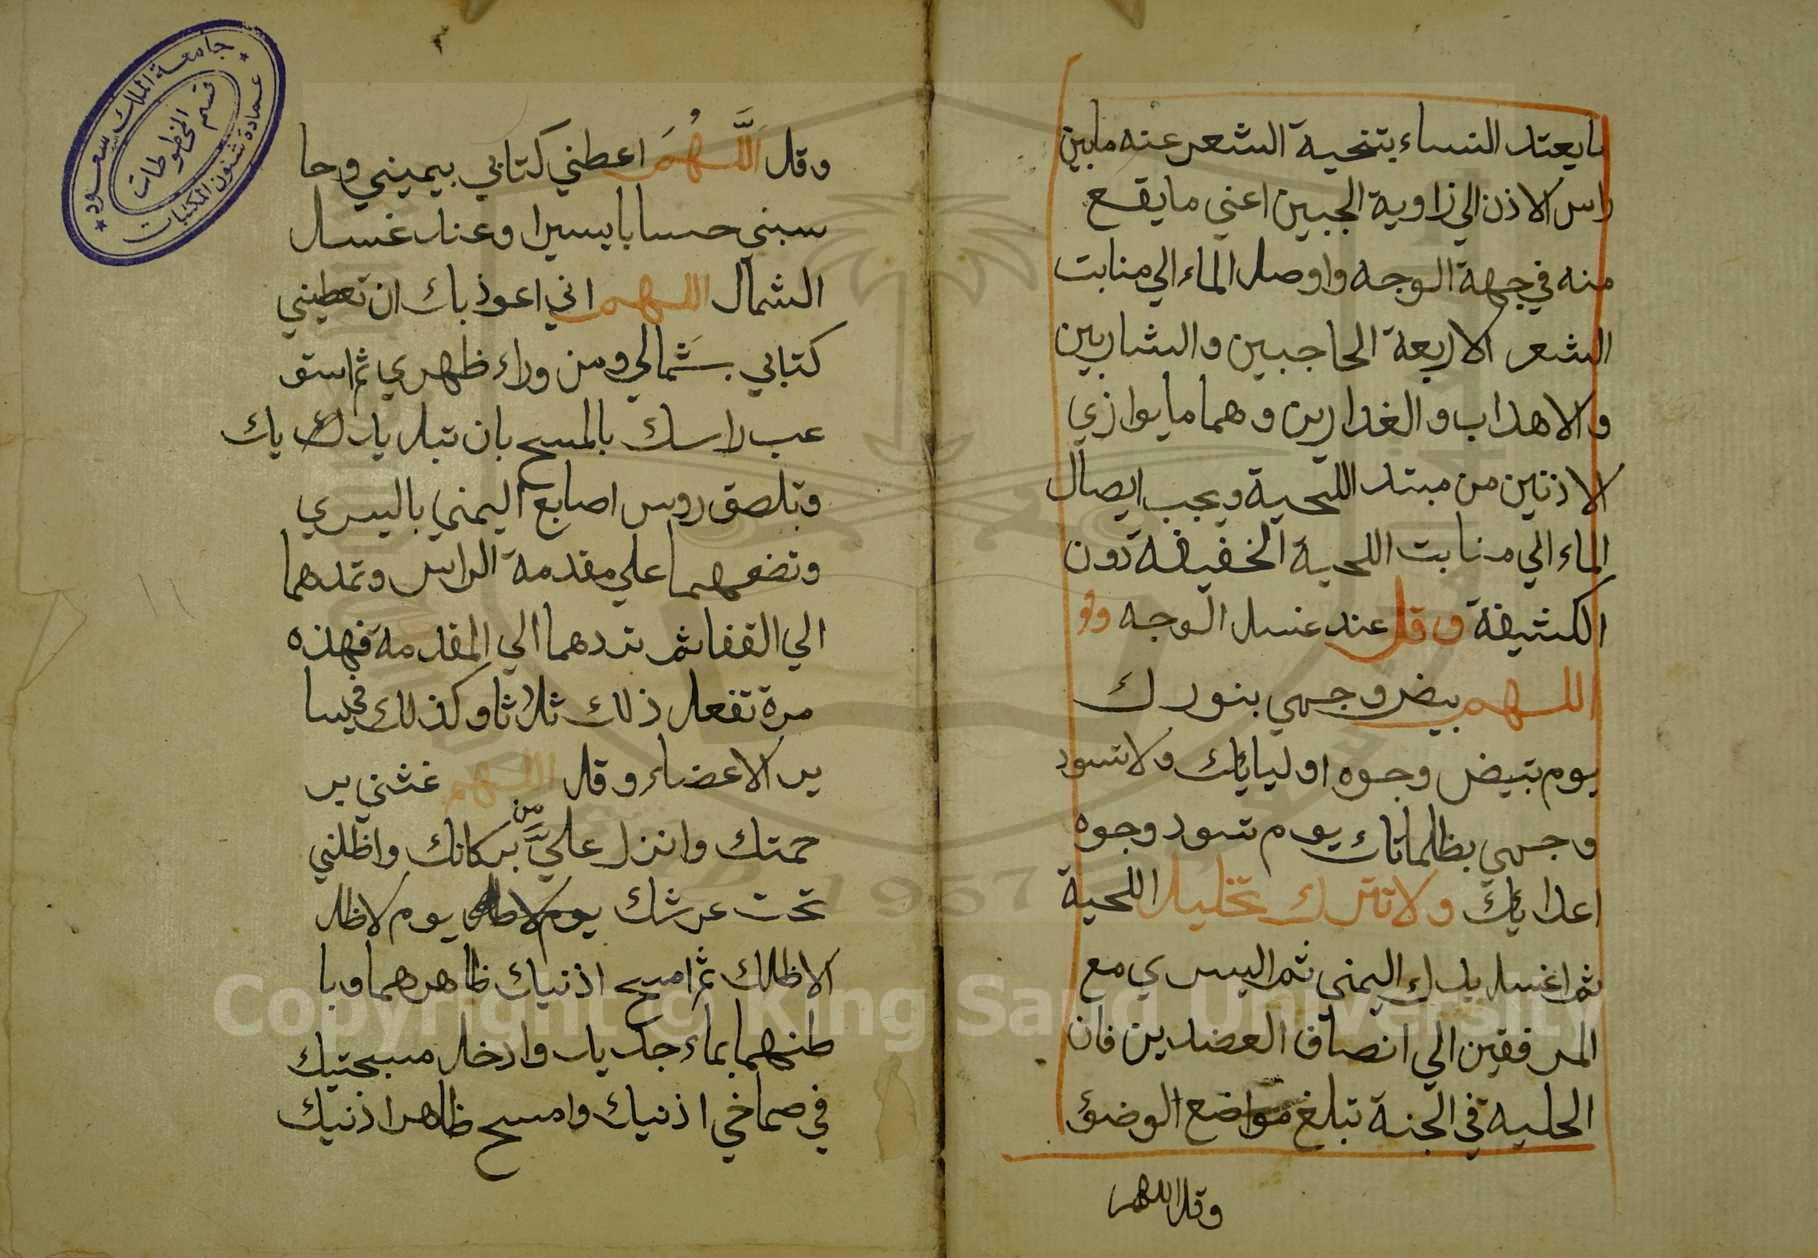 ما يعتد النساء بتنحية الشعر عنه ما بين
راس الاذن الي زاوية الجبين اعني ما يقع
منه في جهة الوجه واوصل الماء الي منابت
الشعر الاربعة الحاجبين والشاربين
والاهداب والغدارين وهما ما يوازي
الاذنين من مبتد اللحية ويجب ايصال
الماء الي منابت اللحية الخفيفة دون
الكشيفة وقل عند غسل الوجه
اللهم بيض وجهي بنورك
يوم تبيض وجوه اوليايك ولا تسود
وجهي بظلماتك يوم تسود وجوه
اعدايك ولا تترك تخليل اللحية
ثم اغسل يدك اليمني ثم اليسري مع
المرفقين الي انصاف العضدين فان
الحلية في الجنة تبلغ مواضع الوضوء
وقل اللهم
وقل اللَّهُمَّ اعطني كتابي بيميني وحا
سبني حسابا يسيرا وعند غسل
الشمال اللهم اني اعوذ بك ان تعطيني
كتابي بشمالي ومن وراء ظهري ثم استو
عب راسك بالمسح بان تبل يدك يك
وتلصق روس اصابع اليمني باليسري
وتضعهما علي مقدمة الراس وتمدهما
الي القفا ثم تردهما الي المقدمة فهذه
مرة تفعل ذلك ثلاثا وكذلك في سا
ير الاعضاء وقل اللهم غشني بر
حمتك وانزل عليَّ من بركاتك واظلني
تحت عرشك يوم لا ظل يوم لا ظل
الا ظلك ثم امسح اذنيك ظاهرهما وبا
طنهما بماء جديد وادخل مسبحتيك
في صماخي اذنيك وامسح ظاهر اذنيك
جامعة الملك سعود
عمادة شئون المكتبات
قسم المخطوطات
1957
Copyright © King Saud University